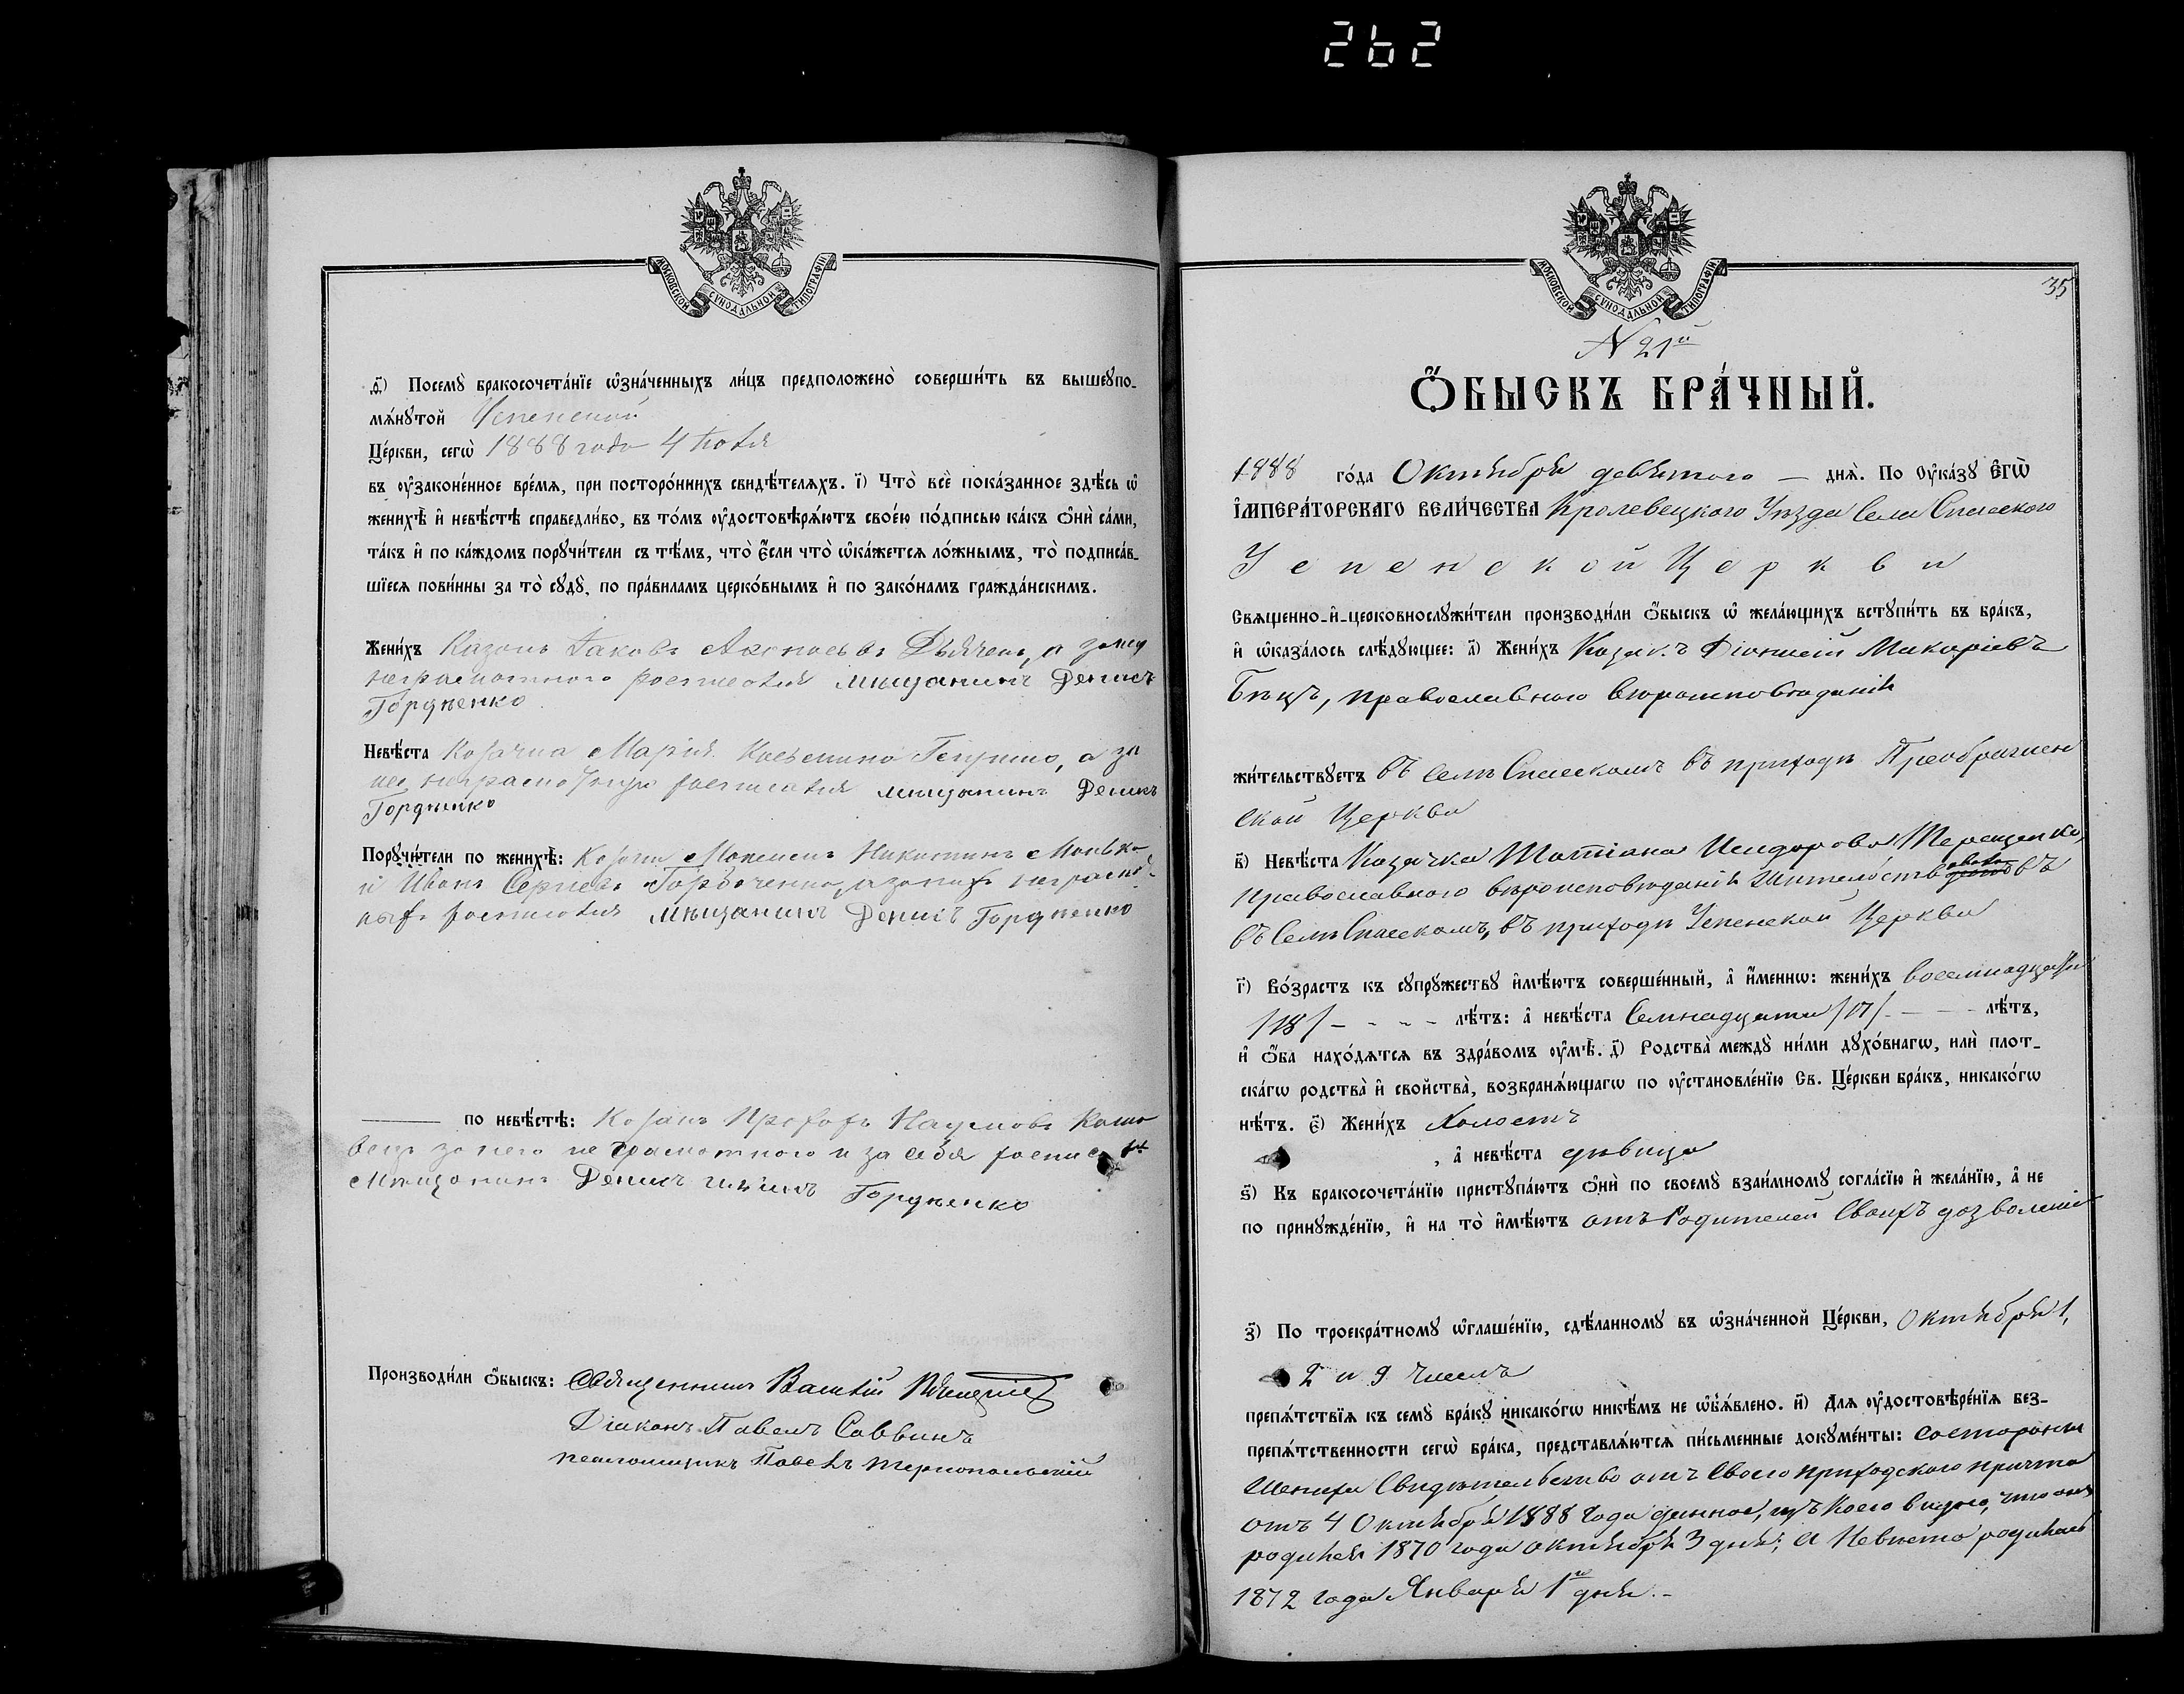 262
МОСКОВСКОЙ СѴНОДАЛЬНОЙ ТИПОГРАФІИ
ѳ҃) Посемꙋ̀ бракосочета́нїе ѡ҆зна́ченныхъ ли́цъ предположено̀ соверши́ть въ вышеꙋпо-
мѧ́нꙋтой Успенской
Це́ркви, сегѡ̀ 1888 года 4 Ноя
въ ᲂу҆законе́нное вре́мѧ, при посторо́ннихъ свидѣ́телѧхъ. і҃) Что̀ всѐ пока́занное здѣ́сь ѡ҆
женихѣ̀ и҆ невѣ́стѣ справедли́во, въ то́мъ ᲂу҆достовѣрѧ́ютъ свое́ю по́дписью ка́къ ѻ҆нѝ са́ми,
та́къ и҆ по ка́ждомъ порꙋчи́тели съ тѣ́мъ, что̀ є҆́сли что̀ ѡ҆ка́жетсѧ ло́жнымъ, то̀ подписа́в-
шїесѧ пови́нны за то̀ сꙋдꙋ̀, по пра́виламъ церко́внымъ и҆ по зако́намъ гражда́нскимъ.
Жени́хъ Казакъ Іаковъ Дьяченко, а за него
неграмотного росписался мѣщанинъ Денисъ
Гордѣенко
Невѣ́ста Козачка Марія Косьмина, а за
нее неграмотную росписался мѣщанинъ Денисъ
Гордѣенко
Порꙋчи́тели по женихѣ̀: Козаки Никитинъ Монько
и Иванъ Сергіевъ Горбаченко, а за нихъ неграмот-
ныхъ росписался мѣщанинъ Денисъ Гордѣенко
по невѣ́стѣ: Козакъ Наумовъ
за него не грамотного и за себя росписался
Мѣщанинъ Денисъ Гордѣенко
Производи́ли ѻ҆́быскъ: Священникъ Василій
Діаконъ Павелъ Саввинъ
псаломщикъ Павелъ Тернопольскій
МОСКОВСКОЙ СѴНОДАЛЬНОЙ ТИПОГРАФІИ
35
N 21й
Ѻ҆́БЫСКЪ БРА́ЧНЫЙ.
1888 го́да Октября девятого — днѧ̀. По Оу҆ка́зꙋ Є҆гѡ̀
І҆мпера́торскагѡ Вели́чества Кролевецкого Уѣзда Села Спасского
Успенской Церкви
Свѧщенно-и҆-церковнослꙋжи́тели производи́ли ѻ҆́быскъ ѡ҆ жела́ющихъ встꙋпи́ть въ бра́къ,
и҆ ѡ҆каза́лось слѣ́дꙋющее: а҃) Жени́хъ Козакъ Діонисій Макаріевъ
Бѣцъ, православного вѣроисповѣданія
жи́тельствꙋетъ въ Селѣ Спасскомъ въ приходѣ Преображен
ской Церкви
в҃) Невѣ́ста Козачка Татіана Исидорова Терещенко,
православного вѣроисповѣданія въ
въ Селѣ Спасскомъ, въ приходѣ Успенской Церкви
г҃) Во́зрастъ къ сꙋпрꙋ́жествꙋ и҆мѣ́ютъ соверше́нный, а҆ и҆́меннѡ: жени́хъ восемнадцати
/18/ - - - - лѣ́тъ: а҆ невѣ́ста Семнадцати /17/ - - - лѣ́тъ,
и҆ ѻ҆́ба нахо́дѧтсѧ въ здра́вомъ ᲂу҆мѣ̀. д҃) Родства̀ междꙋ ни́ми дꙋхо́внагѡ, илѝ плот-
ска́гѡ родства̀ и҆ свойства̀, возбранѧ́ющагѡ по ᲂу҆становле́нїю Св. Це́ркви бра́къ, никако́гѡ
нѣ́тъ. є҃) Жени́хъ Холостъ
, а҆ невѣ́ста дѣвица
ѕ҃) Къ бракосочета́нїю пристꙋпа́ютъ ѻ҆нѝ по своемꙋ̀ взаи́мномꙋ согла́сїю и҆ жела́нїю, а҆ не
по принꙋжде́нїю, и҆ на то̀ и҆мѣ́ютъ отъ Родителей Своихъ дозволеніе
з҃) По троекра́тномꙋ ѡ҆глаше́нїю, сдѣ́ланномꙋ въ ѡ҆зна́ченной Це́ркви, Октября 1,
2 и 9 числъ
препѧ́тствїѧ къ семꙋ̀ бра́кꙋ никако́гѡ никѣ́мъ не ѡ҆б̾ѧ́влено. и҃) Длѧ ᲂу҆достовѣре́нїѧ без-
препѧ́тственности сегѡ̀ бра́ка, представлѧ́ютсѧ пи́сьменные докꙋме́нты: состороны
Жениха Свидѣтельство отъ Своего приходского причта
отъ 4 Октября 1888 года данное, изъ коего видно, что онъ
родился 1870 года октября 3 дня; а Невѣста родилась
1872 года Января 1го дня.-